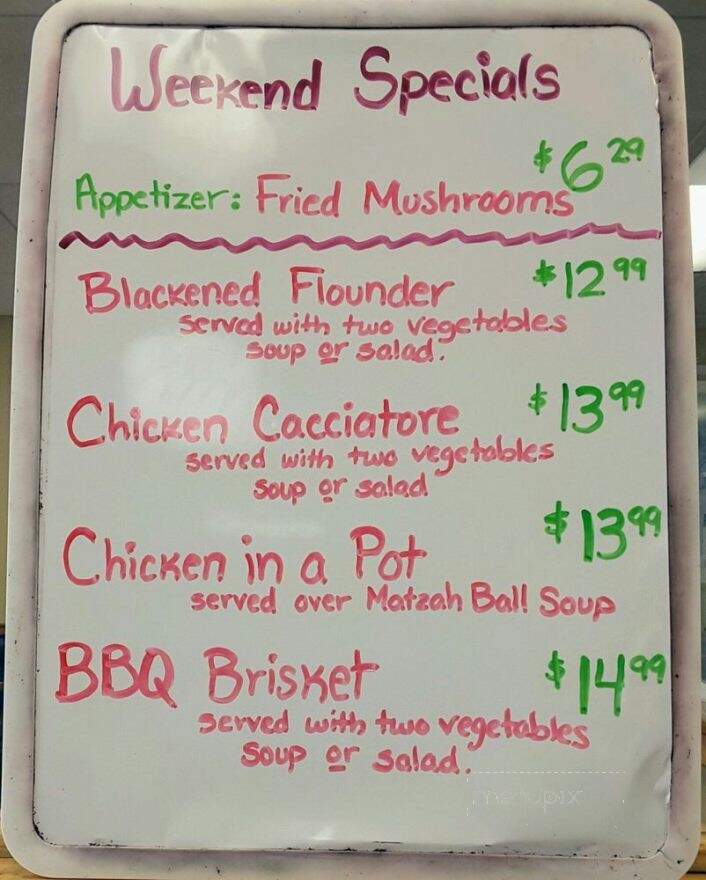 Weekend Specials
Appetizer: Fried Mushrooms $6 29
Blackened Flounder $12 99
served with two vegetables
soup or salad.
Chicken Cacciatore $13 99
served with two vegetables
soup or salad
Chicken in a Pot $13 99
served over Matzah Ball Soup
BBQ Brisket $14 99
served with two vegetables
soup or salad.
menupix